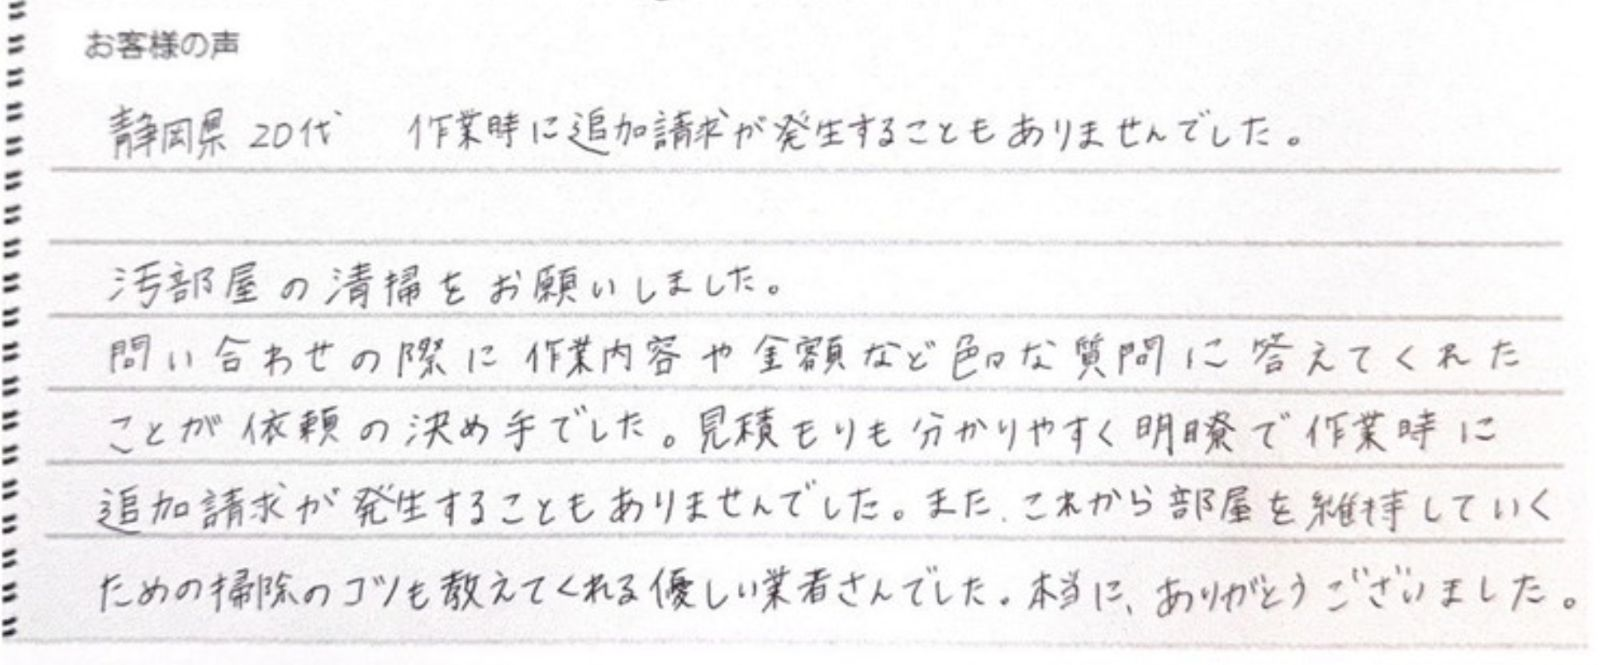 お客様の声
静岡県 20代　作業時に追加請求が発生することもありませんでした。
汚部屋の清掃をお願いしました。
問い合わせの際に作業内容や金額など色々な質問に答えてくれた
ことが依頼の決め手でした。見積もりも分かりやすく明瞭で作業時に
追加請求が発生することもありませんでした。また、これから部屋を維持していく
ための掃除のコツも教えてくれる優しい業者さんでした。本当に、ありがとうございました。